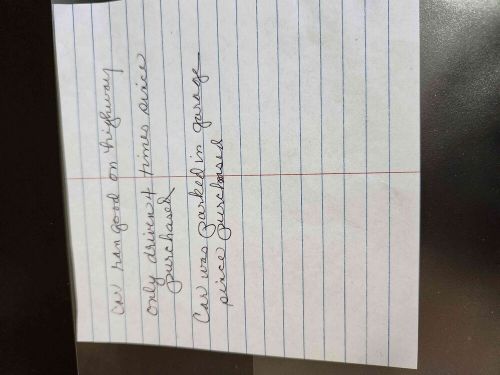 Car ran good on highway
only driven 4 times since
purchased
Car was parked in garage
since purchased